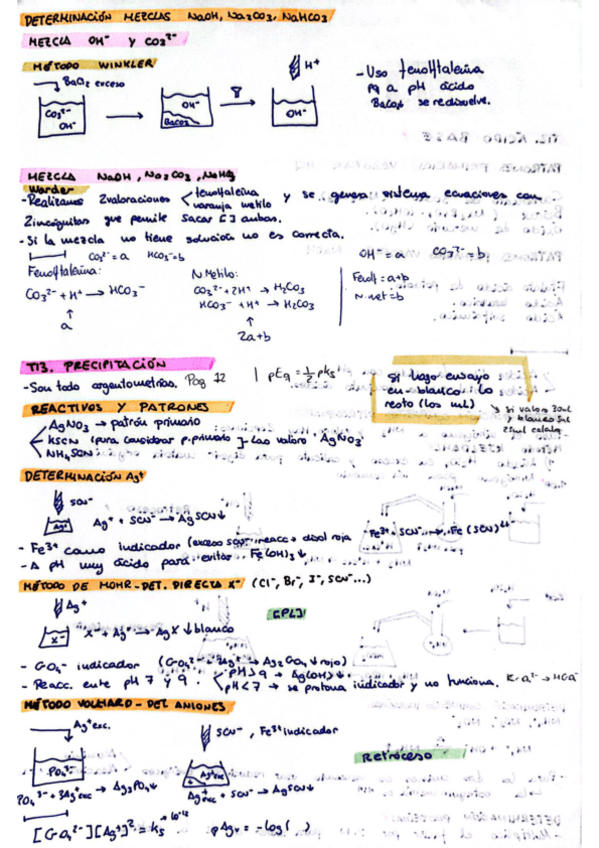 DETERMINACIÓN MEZCLAS NaOH, Na2CO3, NaHCO3
MEZCLA OH⁻ y CO3²⁻
MÉTODO WINKLER
BaCl2 exceso
CO3²⁻
OH⁻
OH⁻
BaCO3
H⁺
OH⁻
- Uso fenolftaleína
pq a pH ácido
BaCO3 se redisuelve.
MEZCLA NaOH, Na2CO3, NaHCO3
Warder
- Realizamos 2 valoraciones < fenolftaleína
naranja metilo
y se genera sistema ecuaciones con
2 incógnitas que permite sacar [] ambas.
- Si la mezcla no tiene solución no es correcta.
CO3²⁻=a HCO3⁻=b
OH⁻=a CO3²⁻=b
Fenolftaleína:
CO3²⁻ + H⁺ → HCO3⁻
↑
a
N. Metilo:
CO3²⁻ + 2H⁺ → H2CO3
HCO3⁻ + H⁺ → H2CO3
↑
2a+b
Fenolf = a+b
N. met = b
T13. PRECIPITACIÓN
- Son todo argentometrías. Pag 12
pEq = 1/2 pKs
Si hago ensayo
en blanco lo
resto (los mL)
si valoro 30ml
y blanco 5ml
25ml
REACTIVOS Y PATRONES
AgNO3 → patrón primario
KSCN (para considerar p. primario } → las valoro · AgNO3
NH4SCN
DETERMINACIÓN Ag⁺
SCN⁻
Ag⁺
Ag⁺ + SCN⁻ → AgSCN↓
- Fe³⁺ como indicador (exceso SCN⁻ reacc → disol roja Fe³⁺ SCN⁻ → Fe(SCN)
- A pH muy ácido para evitar Fe(OH)3↓
MÉTODO DE MOHR - DET. DIRECTA X⁻ (Cl⁻, Br⁻, I⁻, SCN⁻...)
Ag⁺
X⁻
X⁻ + Ag⁺ → AgX ↓ blanco
- CrO4²⁻ indicador (CrO4²⁻ + 2Ag⁺ → Ag2CrO4 ↓ rojo)
- Reacc. entre pH 7 y 9. < pH>9 → Ag(OH)↓
pH<7 → se protona indicador y no funciona.
MÉTODO VOLHARD - DET ANIONES
Ag⁺ exc.
PO4³⁻
PO4³⁻ + 3Ag⁺exc → Ag3PO4↓
SCN⁻, Fe³⁺ indicador
Ag⁺exc
Ag⁺exc + SCN⁻ → AgSCN↓
Retroceso
[CrO4²⁻][Ag⁺]² = Ks
pAgv = -log( )